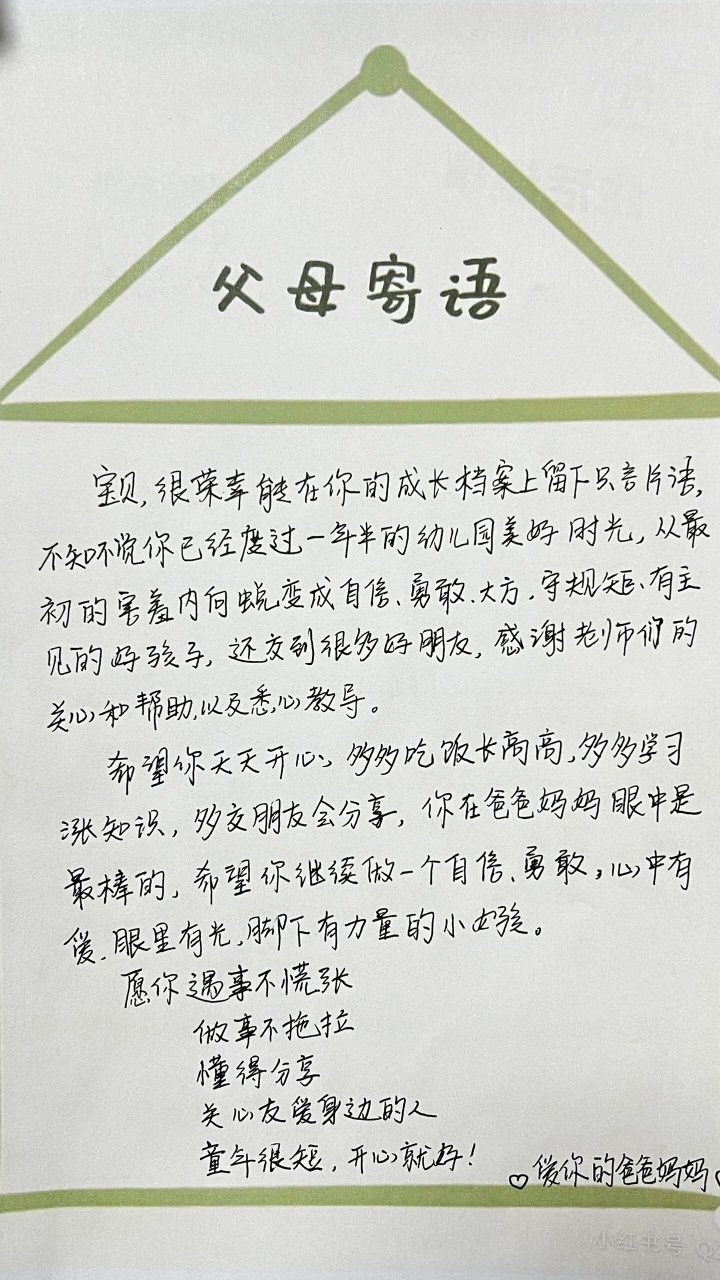 父母寄语
宝贝,很荣幸能在你的成长档案上留下只言片语,
不知不觉你已经度过一年半的幼儿园美好时光,从最
初的害羞内向蜕变成自信、勇敢、大方、守规矩、有主
见的好孩子,还交到很多好朋友,感谢老师们的
关心和帮助,以及悉心教导。
希望你天天开心、多多吃饭长高高,多多学习
涨知识,多交朋友会分享,你在爸爸妈妈眼中是
最棒的,希望你继续做一个自信、勇敢,心中有
爱、眼里有光,脚下有力量的小女孩。
愿你遇事不慌张
做事不拖拉
懂得分享
关心友爱身边的人
童年很短,开心就好!
♡爱你的爸爸妈妈♡
小红书号